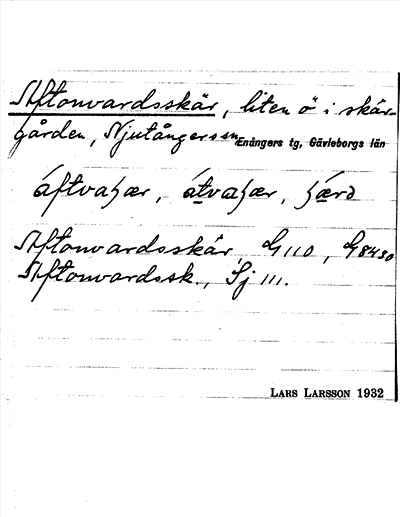 Aftonvardsskär, liten ö i skär-
gården, Njutångers sn, Enångers tg, Gävleborgs län
Aftonvardsskär G 110, G 8430
Aftonvardssk., Sj 111.
LARS LARSSON 1932